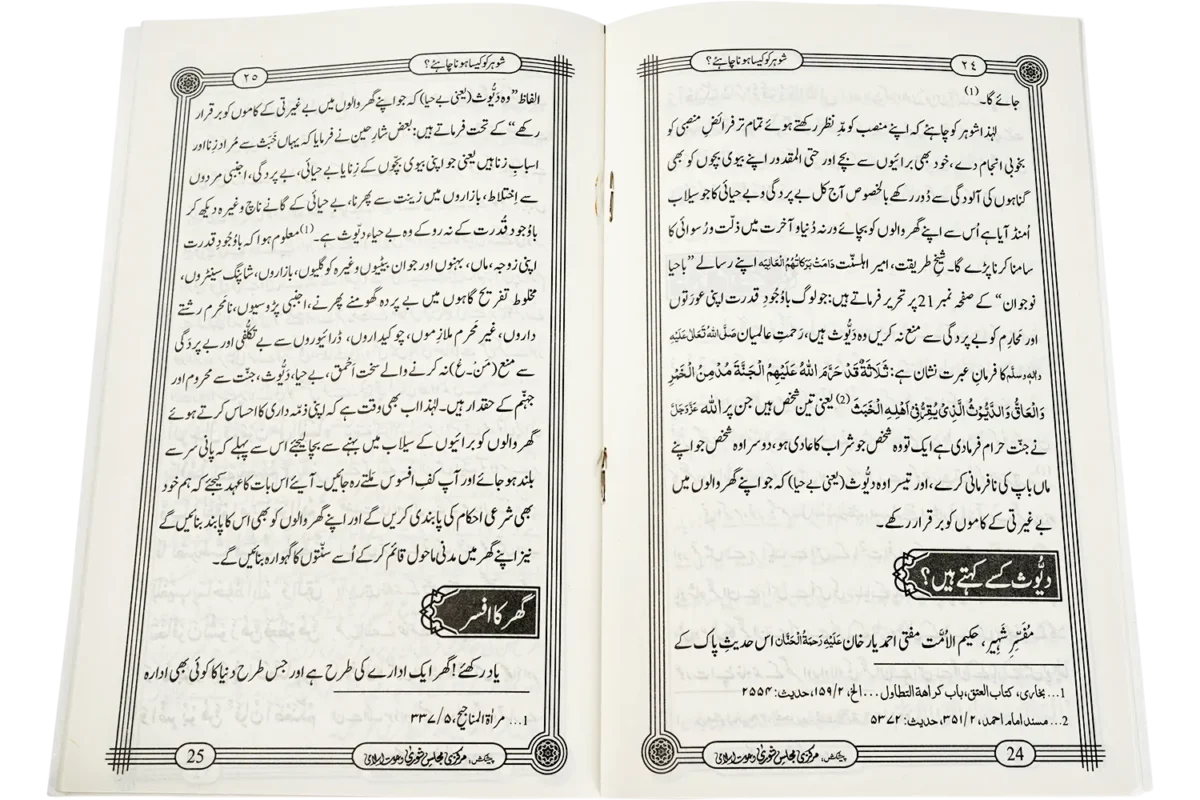 شوہر کو کیسا ہونا چاہئے؟
٢٤
جائے گا۔(1)
لہٰذا شوہر کو چاہئے کہ اپنے منصب کو مدِ نظر رکھتے ہوئے تمام تر فرائضِ منصبی کو
بخوبی انجام دے، خود بھی برائیوں سے بچے اور حتی المقدور اپنے بیوی بچوں کو بھی
گناہوں کی آلودگی سے دُور رکھے بالخصوص آج کل بے پردگی و بے حیائی کا جو سیلاب
اُمنڈ آیا ہے اُس سے اپنے گھر والوں کو بچائے ورنہ دُنیا و آخرت میں ذلّت و رُسوائی کا
سامنا کرنا پڑے گا۔ شیخِ طریقت، امیرِ اہلسنّت دَامَتْ بَرَكَاتُهُمُ الْعَالِيَه اپنے رسالے ”باحیا
نوجوان“ کے صفحہ نمبر 21 پر تحریر فرماتے ہیں: جو لوگ باوُجودِ قدرت اپنی عورَتوں
اور مَحارِم کو بے پردَگی سے منع نہ کریں وہ دَیُّوث ہیں، رَحمتِ عالمیان صَلَّی اللہُ تَعَالٰی عَلَیْہِ
واٰلہٖ وسلَّم کا فرمانِ عبرت نشان ہے: ثَلَاثَةٌ قَدْ حَرَّمَ اللهُ عَلَيْهِمُ الْجَنَّةَ مُدْمِنُ الْخَمْرِ
وَالْعَاقُّ وَالدَّيُّوْثُ الَّذِىْ يُقِرُّ فِىْ اَهْلِهِ الْخَبَثَ(2) یعنی تین شخص ہیں جن پر اللہ عَزَّوَجَلَّ
نے جنّت حرام فرما دی ہے ایک تو وہ شخص جو شراب کا عادی ہو، دوسرا وہ شخص جو اپنے
ماں باپ کی نافرمانی کرے، اور تیسرا وہ دیُّوث (یعنی بے حیا) کہ جو اپنے گھر والوں میں
بے غیرتی کے کاموں کو برقرار رکھے۔
دیُّوث کسے کہتے ہیں؟
مُفَسِّرِ شَہِیر، حکیم الاُمَّت مفتی احمد یار خان عَلَیْہِ رَحمَۃُ الْحَنَّان اس حدیثِ پاک کے
1... بخاری، کتاب العتق، باب کراھة التطاول... الخ، ٢/١٥٩، حدیث: ٢٥٥٤
2... مسند امام احمد، ٢/٣٥١، حدیث: ٥٣٧٢
پیشکش: مرکزی مجلسِ شوریٰ دعوتِ اسلامی
24
شوہر کو کیسا ہونا چاہئے؟
٢٥
الفاظ ”وہ دَیُّوث (یعنی بے حیا) کہ جو اپنے گھر والوں میں بے غیرتی کے کاموں کو برقرار
رکھے“ کے تحت فرماتے ہیں: بعض شارِحین نے فرمایا کہ یہاں خَبَث سے مُراد زِنا اور
اسبابِ زِنا ہیں یعنی جو اپنی بیوی بچّوں کے زِنا یا بے حیائی، بے پردگی، اجنبی مردوں
سے اِختلاط، بازاروں میں زینت سے پھرنا، بے حیائی کے گانے ناچ وغیرہ دیکھ کر
باوُجود قُدرت کے نہ روکے وہ بے حیاء دیّوث ہے۔(1) معلوم ہوا کہ باوُجودِ قدرت
اپنی زوجہ، ماں، بہنوں اور جوان بیٹیوں وغیرہ کو گلیوں، بازاروں، شاپنگ سینٹروں،
مخلوط تفریح گاہوں میں بے پردہ گھومنے پھرنے، اجنبی پڑوسیوں، نامَحرم رشتے
داروں، غیر مَحرم ملازِموں، چوکیداروں، ڈرائیوروں سے بے تکلُّفی اور بے پردَگی
سے منع (مَنْ۔عْ) نہ کرنے والے سخت اَحْمَق، بے حیا، دَیُّوث، جنّت سے محروم اور
جہنّم کے حقدار ہیں۔ لہٰذا اب بھی وقت ہے کہ اپنی ذمّہ داری کا احساس کرتے ہوئے
گھر والوں کو برائیوں کے سیلاب میں بہنے سے بچا لیجئے اس سے پہلے کہ پانی سر سے
بلند ہو جائے اور آپ کفِ افسوس مَلتے رہ جائیں۔ آیئے اس بات کا عہد کیجئے کہ ہم خود
بھی شرعی احکام کی پابندی کریں گے اور اپنے گھر والوں کو بھی اس کا پابند بنائیں گے
نیز اپنے گھر میں مدنی ماحول قائم کر کے اُسے سنّتوں کا گہوارہ بنائیں گے۔
گھر کا افسر
یاد رکھئے! گھر ایک ادارے کی طرح ہے اور جس طرح دنیا کا کوئی بھی ادارہ
1... مراٰۃ المناجیح، ٥/٣٣٧
پیشکش: مرکزی مجلسِ شوریٰ دعوتِ اسلامی
25